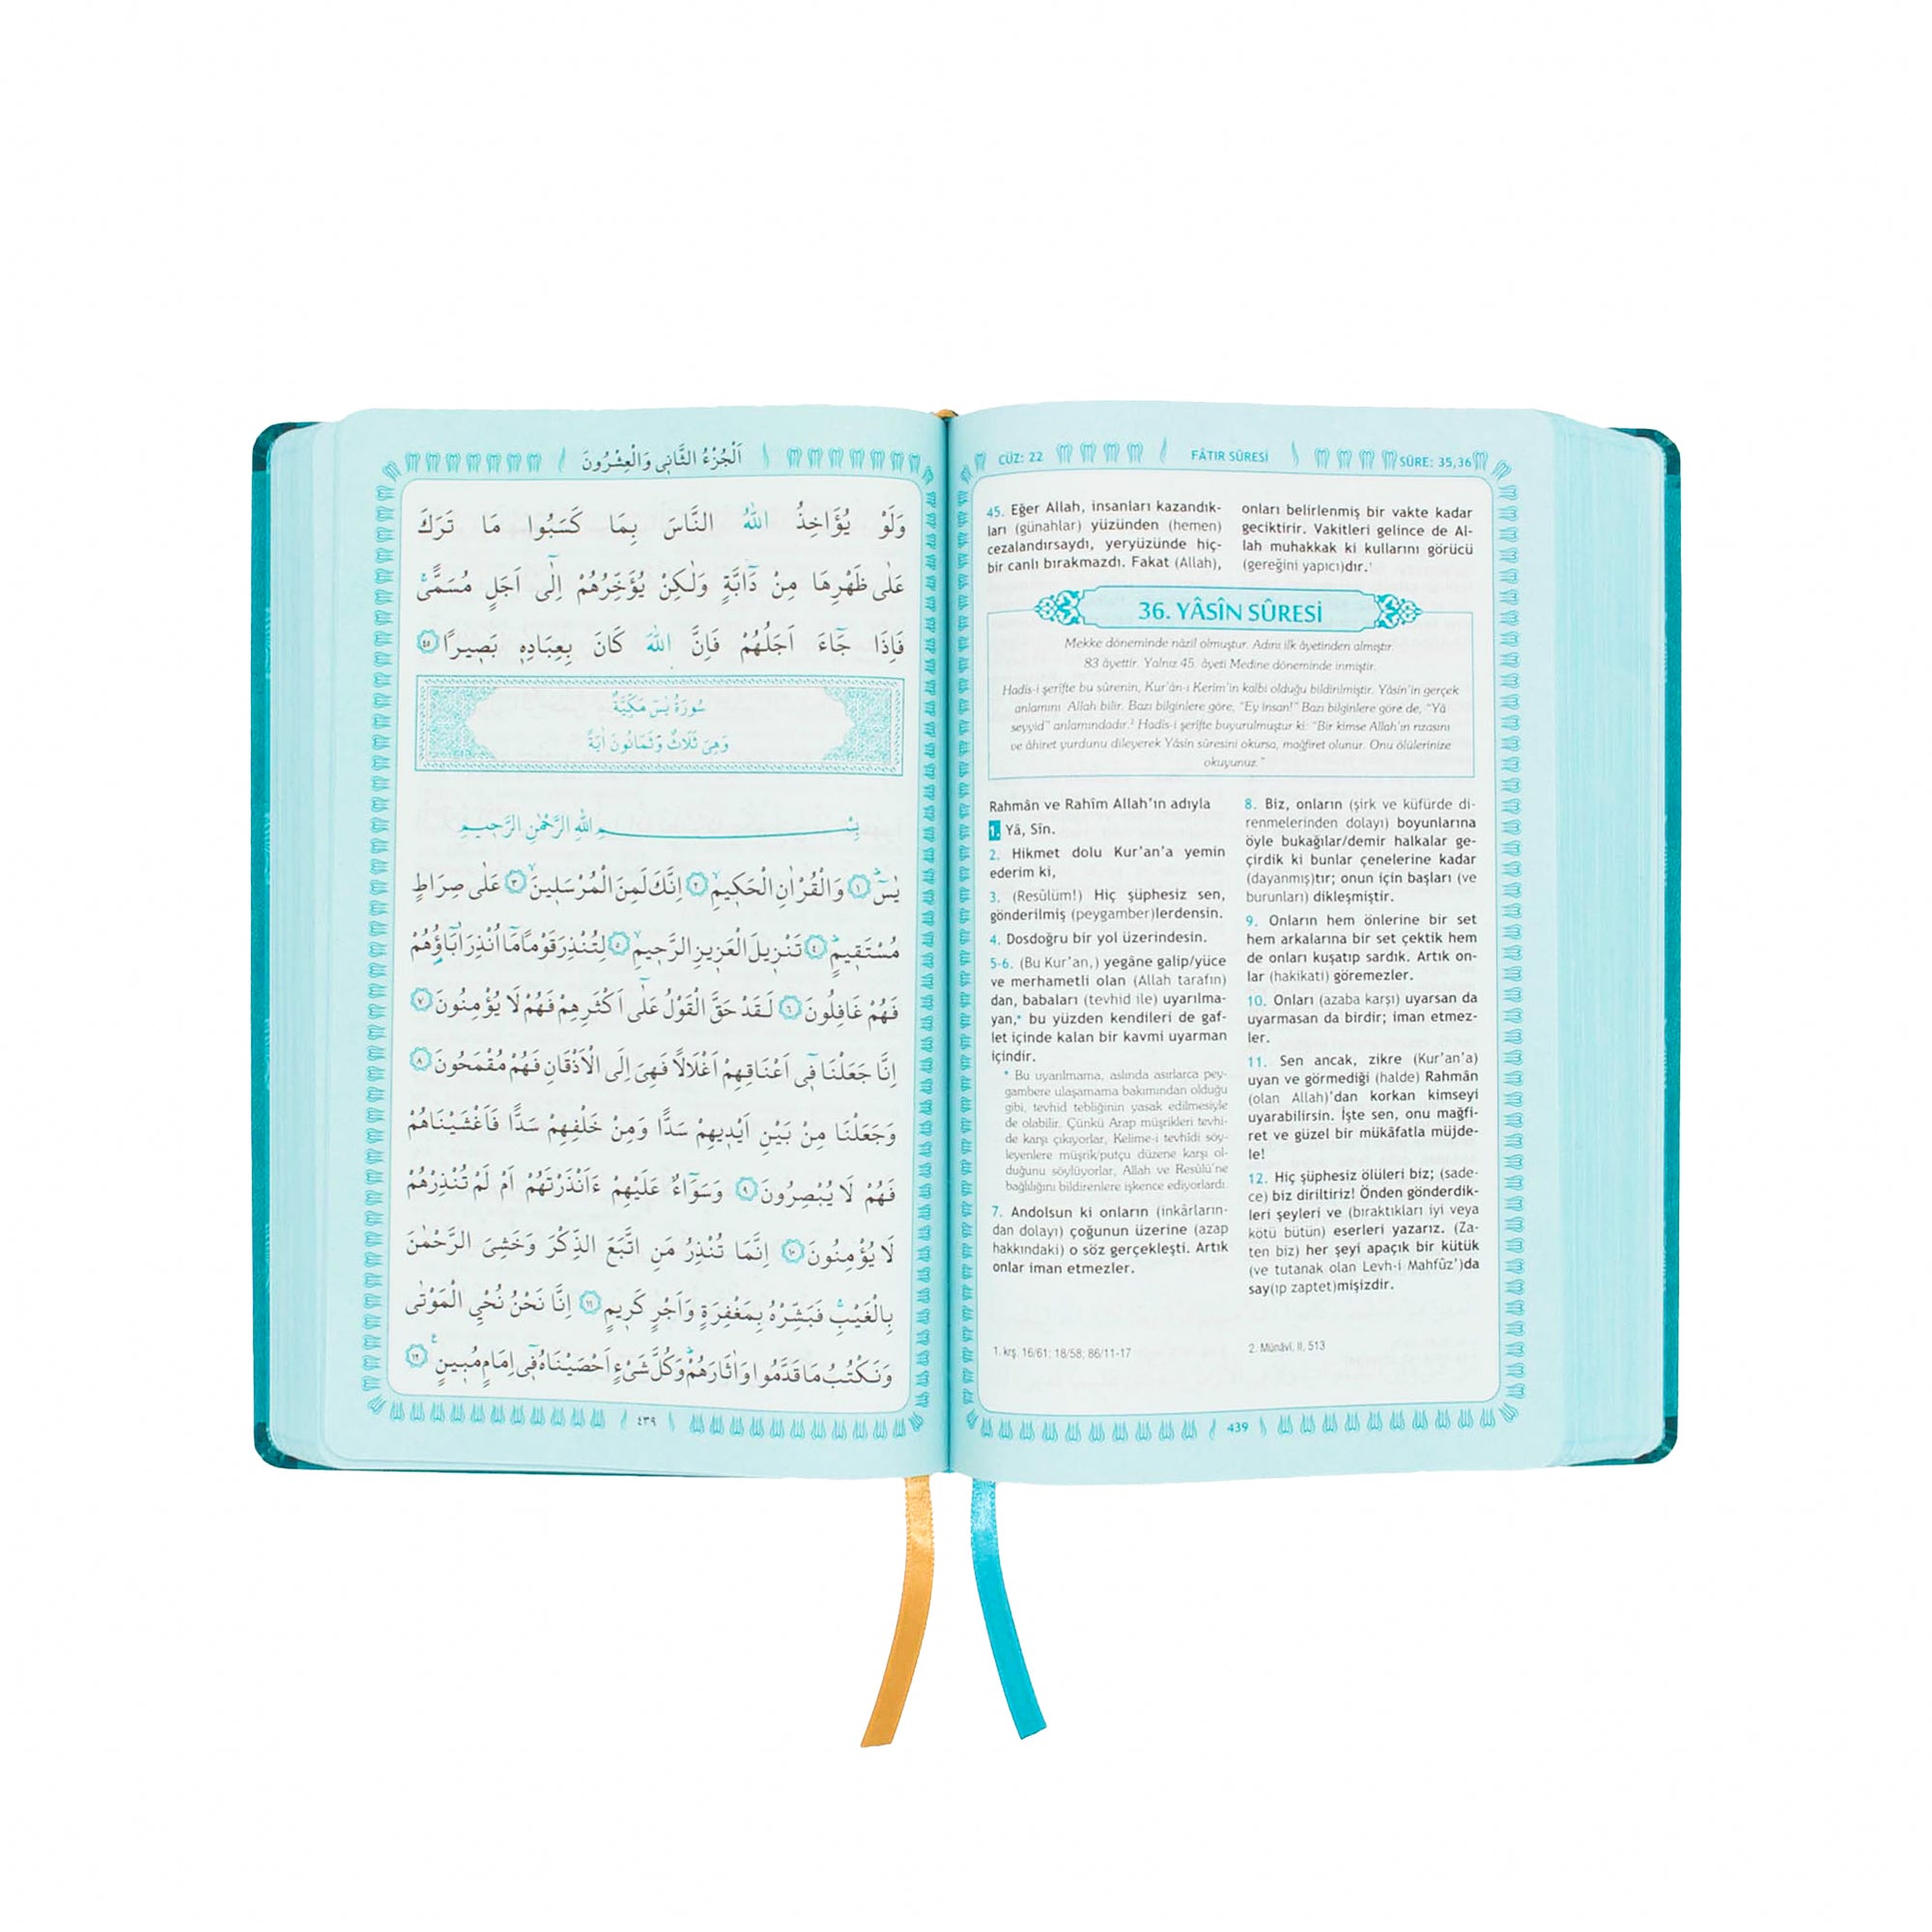 اَلْجُزْءُ الثَّانِى وَالْعِشْرُونَ
وَلَوْ يُؤَاخِذُ اللّٰهُ النَّاسَ بِمَا كَسَبُوا مَا تَرَكَ
عَلٰى ظَهْرِهَا مِنْ دَٓابَّةٍ وَلٰكِنْ يُؤَخِّرُهُمْ اِلٰٓى اَجَلٍ مُسَمًّىۚ
فَاِذَا جَٓاءَ اَجَلُهُمْ فَاِنَّ اللّٰهَ كَانَ بِعِبَادِه۪ بَص۪يرًا ٤٥
سُورَةُ يٰسٓ مَكِّيَّةٌ
وَهِىَ ثَلَاثٌ وَثَمَانُونَ اٰيَةً
بِسْمِ اللّٰهِ الرَّحْمٰنِ الرَّح۪يمِ
يٰسٓۜ ١ وَالْقُرْاٰنِ الْحَك۪يمِۙ ٢ اِنَّكَ لَمِنَ الْمُرْسَل۪ينَۙ ٣ عَلٰى صِرَاطٍ
مُسْتَق۪يمٍۜ ٤ تَنْز۪يلَ الْعَز۪يزِ الرَّح۪يمِۙ ٥ لِتُنْذِرَ قَوْمًا مَٓا اُنْذِرَ اٰبَٓاؤُ۬هُمْ
فَهُمْ غَافِلُونَ ٦ لَقَدْ حَقَّ الْقَوْلُ عَلٰٓى اَكْثَرِهِمْ فَهُمْ لَا يُؤْمِنُونَ ٧
اِنَّا جَعَلْنَا ف۪ٓى اَعْنَاقِهِمْ اَغْلَالًا فَهِىَ اِلَى الْاَذْقَانِ فَهُمْ مُقْمَحُونَ ٨
وَجَعَلْنَا مِنْ بَيْنِ اَيْد۪يهِمْ سَدًّا وَمِنْ خَلْفِهِمْ سَدًّا فَاَغْشَيْنَاهُمْ
فَهُمْ لَا يُبْصِرُونَ ٩ وَسَوَٓاءٌ عَلَيْهِمْ ءَاَنْذَرْتَهُمْ اَمْ لَمْ تُنْذِرْهُمْ
لَا يُؤْمِنُونَ ١٠ اِنَّمَا تُنْذِرُ مَنِ اتَّبَعَ الذِّكْرَ وَخَشِىَ الرَّحْمٰنَ
بِالْغَيْبِۚ فَبَشِّرْهُ بِمَغْفِرَةٍ وَاَجْرٍ كَر۪يمٍ ١١ اِنَّا نَحْنُ نُحْيِ الْمَوْتٰى
وَنَكْتُبُ مَا قَدَّمُوا وَاٰثَارَهُمْۜ وَكُلَّ شَىْءٍ اَحْصَيْنَاهُ ف۪ٓى اِمَامٍ مُب۪ينٍ ١٢
٤٣٩
CÜZ: 22 FÂTIR SÛRESİ SÛRE: 35,36
45. Eğer Allah, insanları kazandık-
ları (günahlar) yüzünden (hemen)
cezalandırsaydı, yeryüzünde hiç-
bir canlı bırakmazdı. Fakat (Allah),
onları belirlenmiş bir vakte kadar
geciktirir. Vakitleri gelince de Al-
lah muhakkak ki kullarını görücü
(gereğini yapıcı)dır.¹
36. YÂSÎN SÛRESİ
Mekke döneminde nâzil olmuştur. Adını ilk âyetinden almıştır.
83 âyettir. Yalnız 45. âyeti Medine döneminde inmiştir.
Hadis-i şerifte bu sûrenin, Kur'ân-ı Kerim'in kalbi olduğu bildirilmiştir. Yâsîn'in gerçek
anlamını Allah bilir. Bazı bilginlere göre, "Ey insan!" Bazı bilginlere göre de, "Yâ
seyyid" anlamındadır.² Hadîs-i şerifte buyurulmuştur ki: "Bir kimse Allah'ın rızasını
ve âhiret yurdunu dileyerek Yâsîn sûresini okursa, mağfiret olunur. Onu ölülerinize
okuyunuz."
Rahmân ve Rahîm Allah'ın adıyla
1. Yâ, Sîn.
2. Hikmet dolu Kur'an'a yemin
ederim ki,
3. (Resûlüm!) Hiç şüphesiz sen,
gönderilmiş (peygamber)lerdensin.
4. Dosdoğru bir yol üzerindesin.
5-6. (Bu Kur'an,) yegâne galip/yüce
ve merhametli olan (Allah tarafın)
dan, babaları (tevhid ile) uyarılma-
yan,* bu yüzden kendileri de gaf-
let içinde kalan bir kavmi uyarman
içindir.
* Bu uyarılmama, aslında asırlarca pey-
gambere ulaşamama bakımından olduğu
gibi, tevhid tebliğinin yasak edilmesiyle
de olabilir. Çünkü Arap müşrikleri tevhi-
de karşı çıkıyorlar, Kelime-i tevhîdi söy-
leyenlere müşrik/putçu düzene karşı ol-
duğunu söylüyorlar, Allah ve Resûlü'ne
bağlılığını bildirenlere işkence ediyorlardı.
7. Andolsun ki onların (inkârların-
dan dolayı) çoğunun üzerine (azap
hakkındaki) o söz gerçekleşti. Artık
onlar iman etmezler.
8. Biz, onların (şirk ve küfürde di-
renmelerinden dolayı) boyunlarına
öyle bukağılar/demir halkalar ge-
çirdik ki bunlar çenelerine kadar
(dayanmış)tır; onun için başları (ve
burunları) dikleşmiştir.
9. Onların hem önlerine bir set
hem arkalarına bir set çektik hem
de onları kuşatıp sardık. Artık on-
lar (hakikati) göremezler.
10. Onları (azaba karşı) uyarsan da
uyarmasan da birdir; iman etmez-
ler.
11. Sen ancak, zikre (Kur'an'a)
uyan ve görmediği (halde) Rahmân
(olan Allah)'dan korkan kimseyi
uyarabilirsin. İşte sen, onu mağfi-
ret ve güzel bir mükâfatla müjde-
le!
12. Hiç şüphesiz ölüleri biz; (sade-
ce) biz diriltiriz! Önden gönderdik-
leri şeyleri ve (bıraktıkları iyi veya
kötü bütün) eserleri yazarız. (Za-
ten biz) her şeyi apaçık bir kütük
(ve tutanak olan Levh-i Mahfûz')da
say(ıp zaptet)mişizdir.
1. krş. 16/61; 18/58; 86/11-17
2. Münâvî, II, 513
439